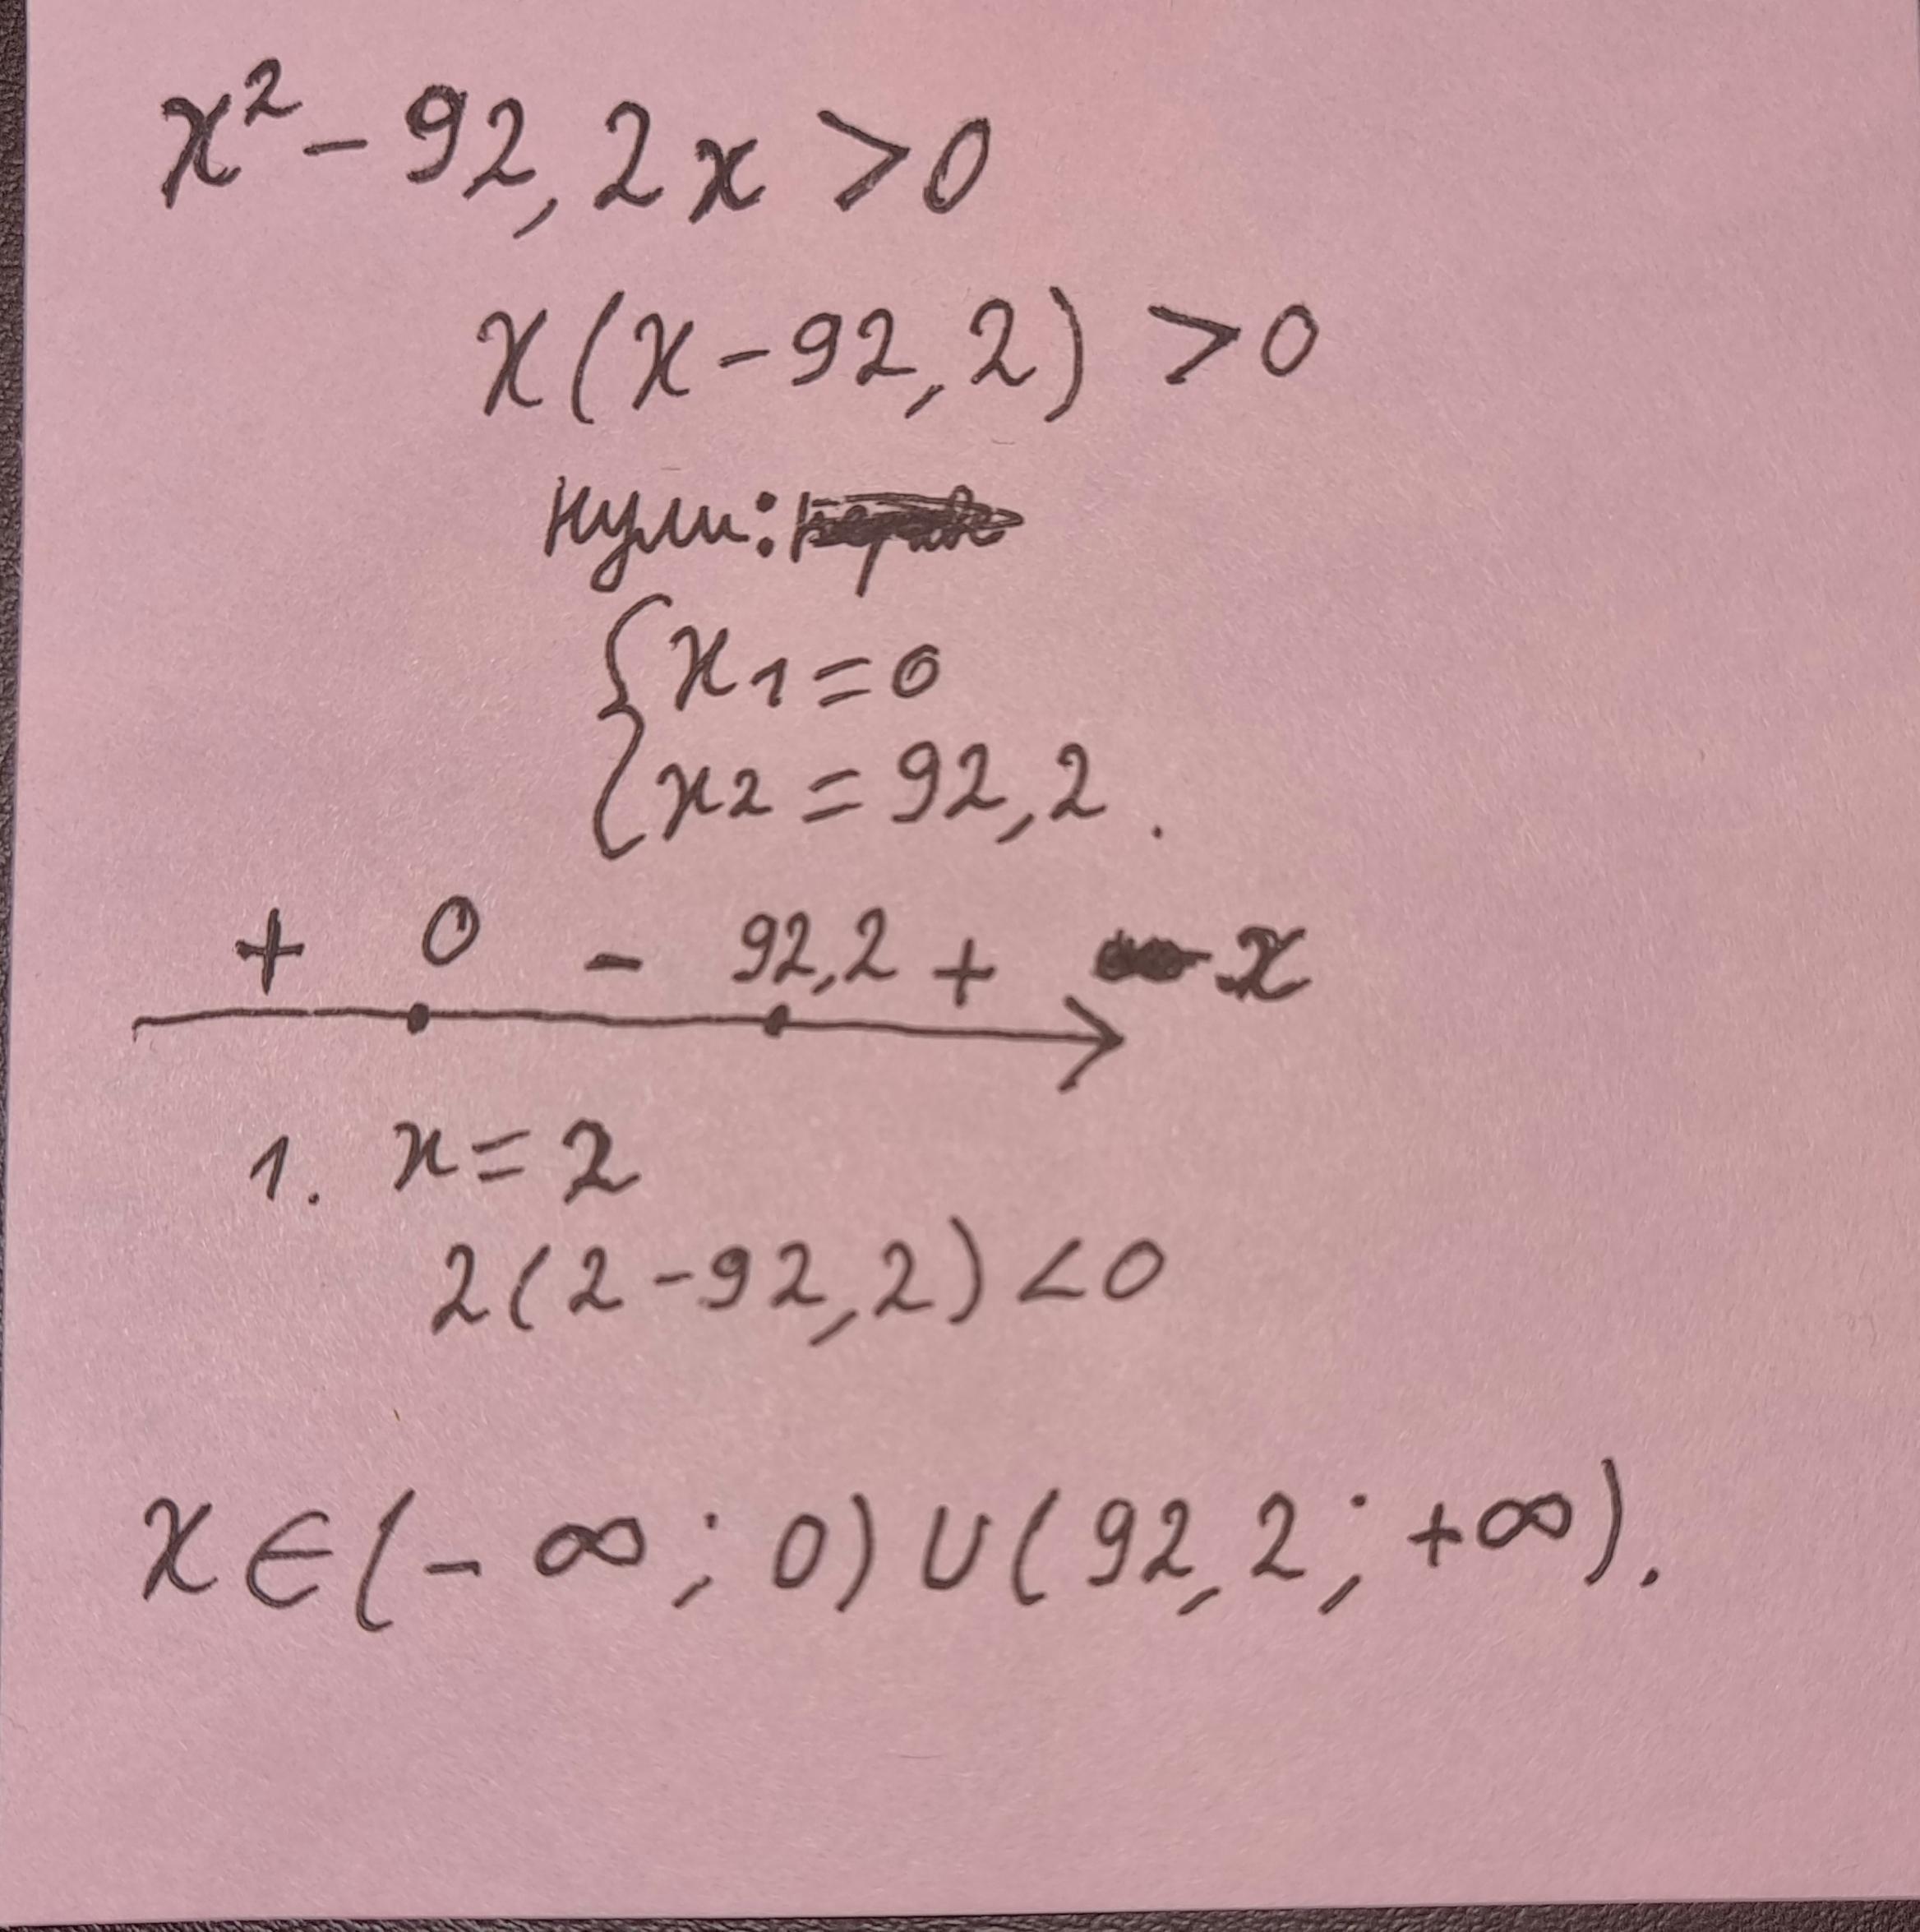 x² - 92,2x > 0
x(x - 92,2) > 0
нули:
{x1 = 0
{x2 = 92,2.
+ 0 - 92,2 + x
1. x = 2
2(2 - 92,2) < 0
x ∈ (-∞; 0) ∪ (92,2; +∞).